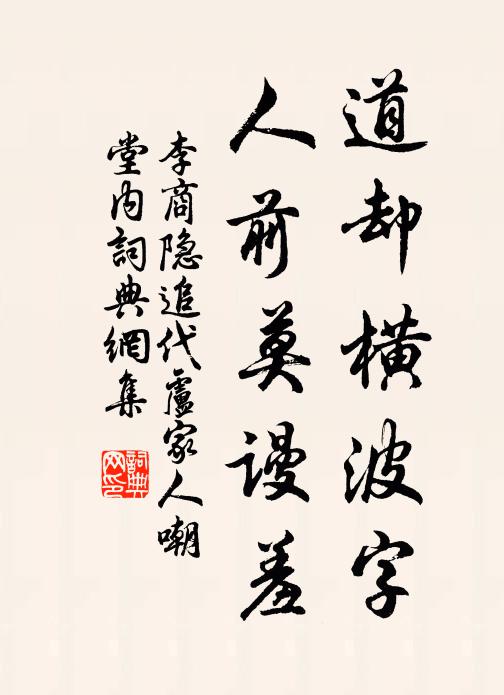 道却横波字
人前莫謾羞
李商隐追代盧家人嘲
堂内詞典網集
詞典
网印